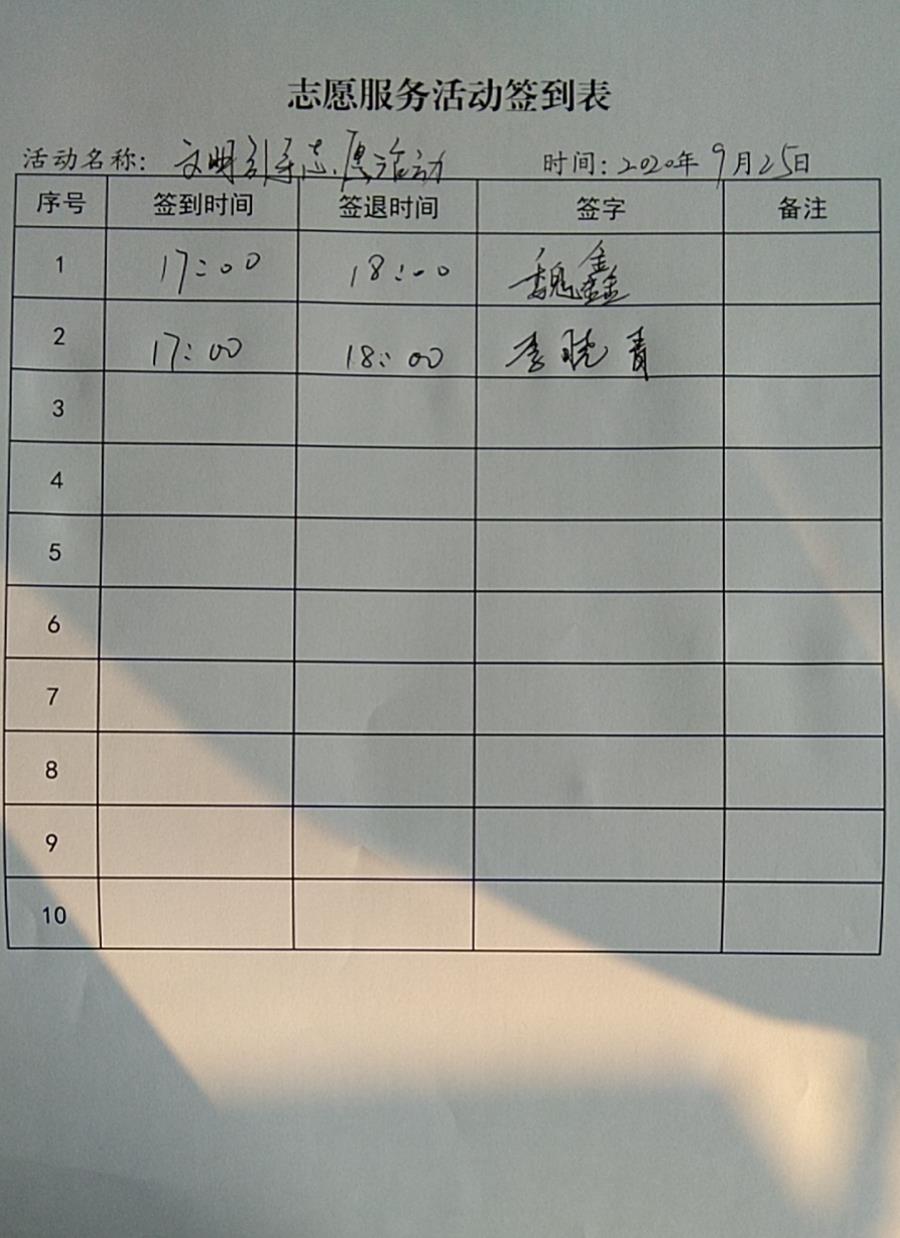 志愿服务活动签到表
活动名称: 文明引导志愿活动 时间: 2020年9月25日
序号 签到时间 签退时间 签字 备注
1 17:00 18:00 魏鑫
2 17:00 18:00 李晓青
3
4
5
6
7
8
9
10